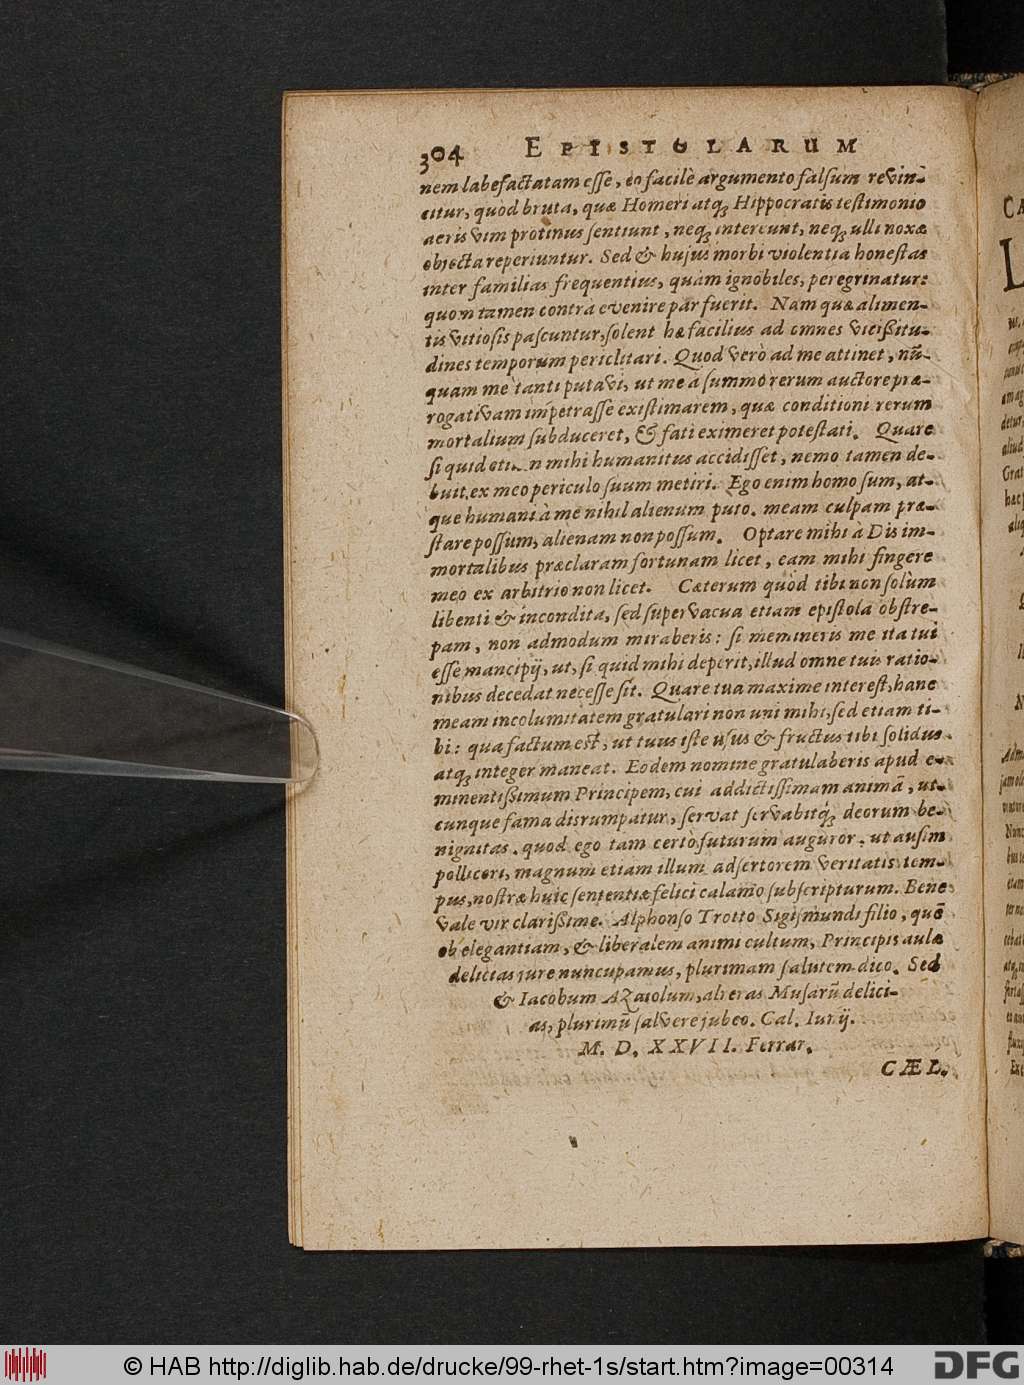 304 EPISTOLARUM
nem labefactatam esse, eo facilè argumento falsum revin-
citur, quòd bruta, quæ Homeri atq; Hippocratis testimonio
aeris vim protinus sentiunt, neq; intereunt, neq; ulli noxæ
obiecta reperiuntur. Sed & hujus morbi violentia honestas
inter familias frequentius, quàm ignobiles, peregrinatur:
quom tamen contrà evenire par fuerit. Nam quæ alimen-
tis vitiosis pascuntur, solent hæ facilius ad omnes vicißitu-
dines temporum periclitari. Quod verò ad me attinet, nũ-
quam me tanti putavi, ut me à summo rerum auctore præ-
rogativam impetrasse existimarem, quæ conditioni rerum
mortalium subduceret, & fati eximeret potestati. Quare
si quid mihi humanitus accidisset, nemo tamen de-
buit ex meo periculo suum metiri. Ego enim homo sum, at-
que humani à me nihil alienum puto. meam culpam præ-
stare possum, alienam non possum. Optare mihi à Dis im-
mortalibus præclaram fortunam licet, eam mihi fingere
meo ex arbitrio non licet. Cæterum quòd tibi non solùm
libenti & incondita, sed supervacua etiam epistola obstre-
pam, non admodum miraberis: si memineris me ita tui
esse mancipij, ut, si quid mihi deperit, illud omne tuis ratio-
nibus decedat necesse sit. Quare tua maxime interest, hanc
meam incolumitatem gratulari non uni mihi, sed etiam ti-
bi: qua factum est, ut tuus iste usus & fructus tibi solidus
atq; integer maneat. Eodem nomine gratulaberis apud e-
minentißimum Principem, cui addictissimam animã, ut-
cunque fama disrumpatur, servat servabitq; deorum be-
nignitas. quod ego tam certò futurum auguror, ut ausim
polliceri, magnum etiam illum adsertorem veritatis tem-
pus, nostræ huic sententiæ felici calamo subscripturum. Bene
vale vir clarißime. Alphonso Trotto Sigismundi filio, quẽ
ob elegantiam, & liberalem animi cultum, Principis aulæ
delicias jure nuncupamus, plurimam salutem dico. Sed
& Iacobum Azaiolum, alteras Musarũ delici-
as, plurimũ salvere jubeo. Cal. Iunij.
M. D. XXVII. Ferrar.
CÆL.
© HAB http://diglib.hab.de/drucke/99-rhet-1s/start.htm?image=00314
DFG